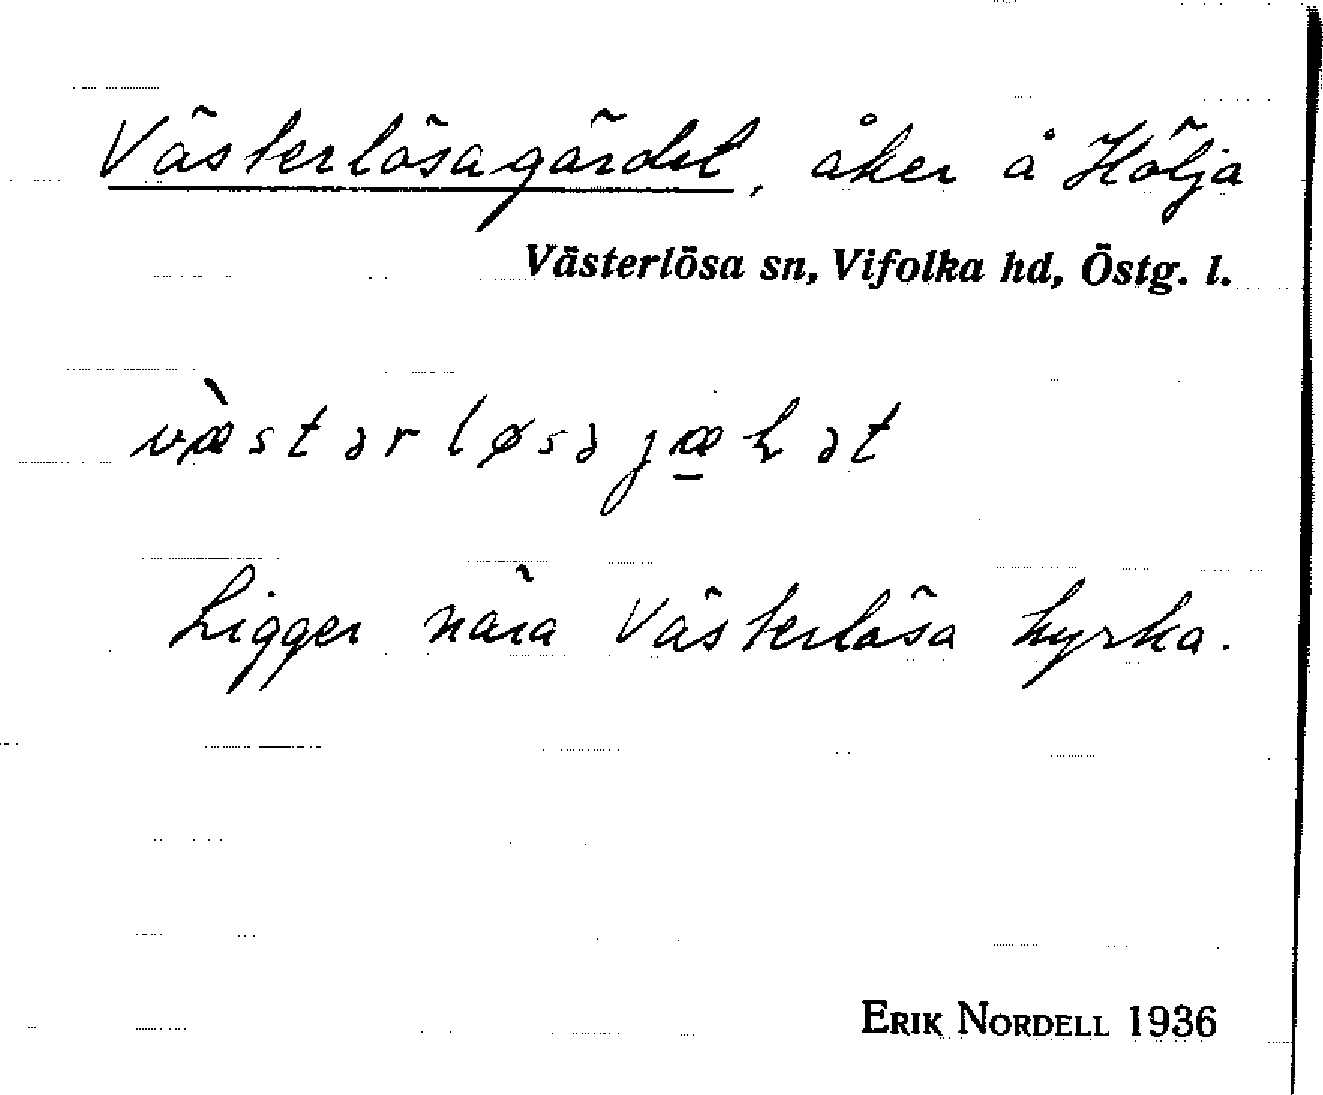 Västerlösagärdet, åker å Hölja
Västerlösa sn, Vifolka hd, Östg. l.
væ̀stərløsəjæ̲ɫət
Ligger nära Västerlösa kyrka.
ERIK NORDELL 1936